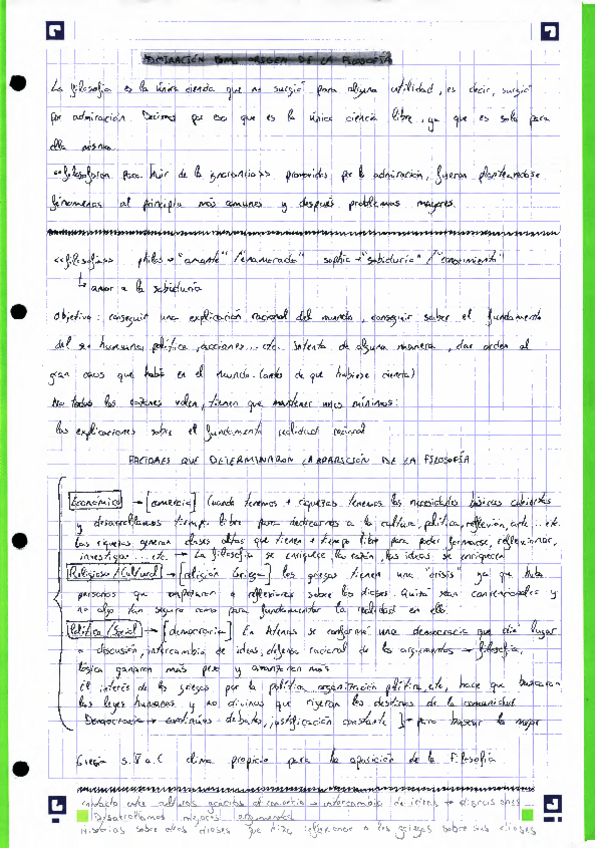 ADMIRACIÓN COMO ORIGEN DE LA FILOSOFÍA
La filosofía es la única ciencia que no surgió para alguna utilidad, es decir, surgió
por admiración. Decimos por eso que es la única ciencia libre, ya que es solo para
ella misma.
<<filosofaron para huir de la ignorancia>> promovidos por la admiración, fueron planteandose
fenómenos al principio más comunes y después problemas mayores.
<<filosofía>> philos → "amante" / "enamorado" sophia → "sabiduría" / "conocimiento"
↳ amor a la sabiduría
Objetivo: conseguir una explicación racional del mundo, conseguir saber el fundamento
del ser humano, política, acciones... etc. Intenta de alguna manera, dar orden al
gran caos que había en el mundo. (antes de que hubiese ciencia)
No todas las razones valen, tienen que mantener unos mínimos:
las explicaciones sobre el fundamento realidad racional
FACTORES QUE DETERMINARON LA APARICIÓN DE LA FILOSOFÍA
Económico → [comercio] Cuando tenemos + riquezas tenemos las necesidades básicas cubiertas
y desarrollamos tiempo libre para dedicarnos a la cultura, política, reflexión, arte... etc.
Las riquezas generan clases altas que tienen + tiempo libre para poder formarse, reflexionar,
investigar... etc. → La filosofía se enriquece la razón, las ideas se enriquecen
Religioso / Cultural → [religión Griega] los griegos tienen una "crisis" ya que hubo
personas que empezaron a reflexionar sobre los dioses. Quizá sean convencionales y
no algo tan seguro como para fundamentar la realidad en ello.
Política / Social → [democracia] En Atenas se conformó una democracia que dio lugar
a discusión, intercambio de ideas, defensa racional de los argumentos → filosofía,
lógica ganaron más peso y avanzaron más
El interés de los griegos por la política, organización política, etc, hace que buscaran
las leyes humanas y no divinas que rigeran los destinos de la comunidad
Democracia → continuos debates, justificación constante ] → para buscar lo mejor
Grecia s. V a.C clima propicio para la aparición de la Filosofía
contacto entre culturas gracias al comercio → intercambio de ideas →
Desarrollamos mejores argumentos
Historias sobre otros dioses que hizo reflexionar a los griegos sobre sus dioses